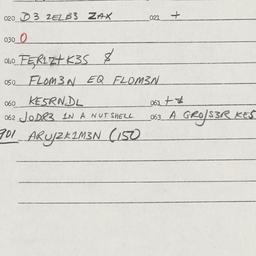 020 D3 2ELB3 ZAK 021 +
030 0
040 FERIZ++K3S $
050 FLOM3N EQ FLOM3N
060 KESRNDL 061 +$
062 JODR3 IN A NUTSHELL 063 A GROJS3R KES
901 ARUJZK1M3N (150